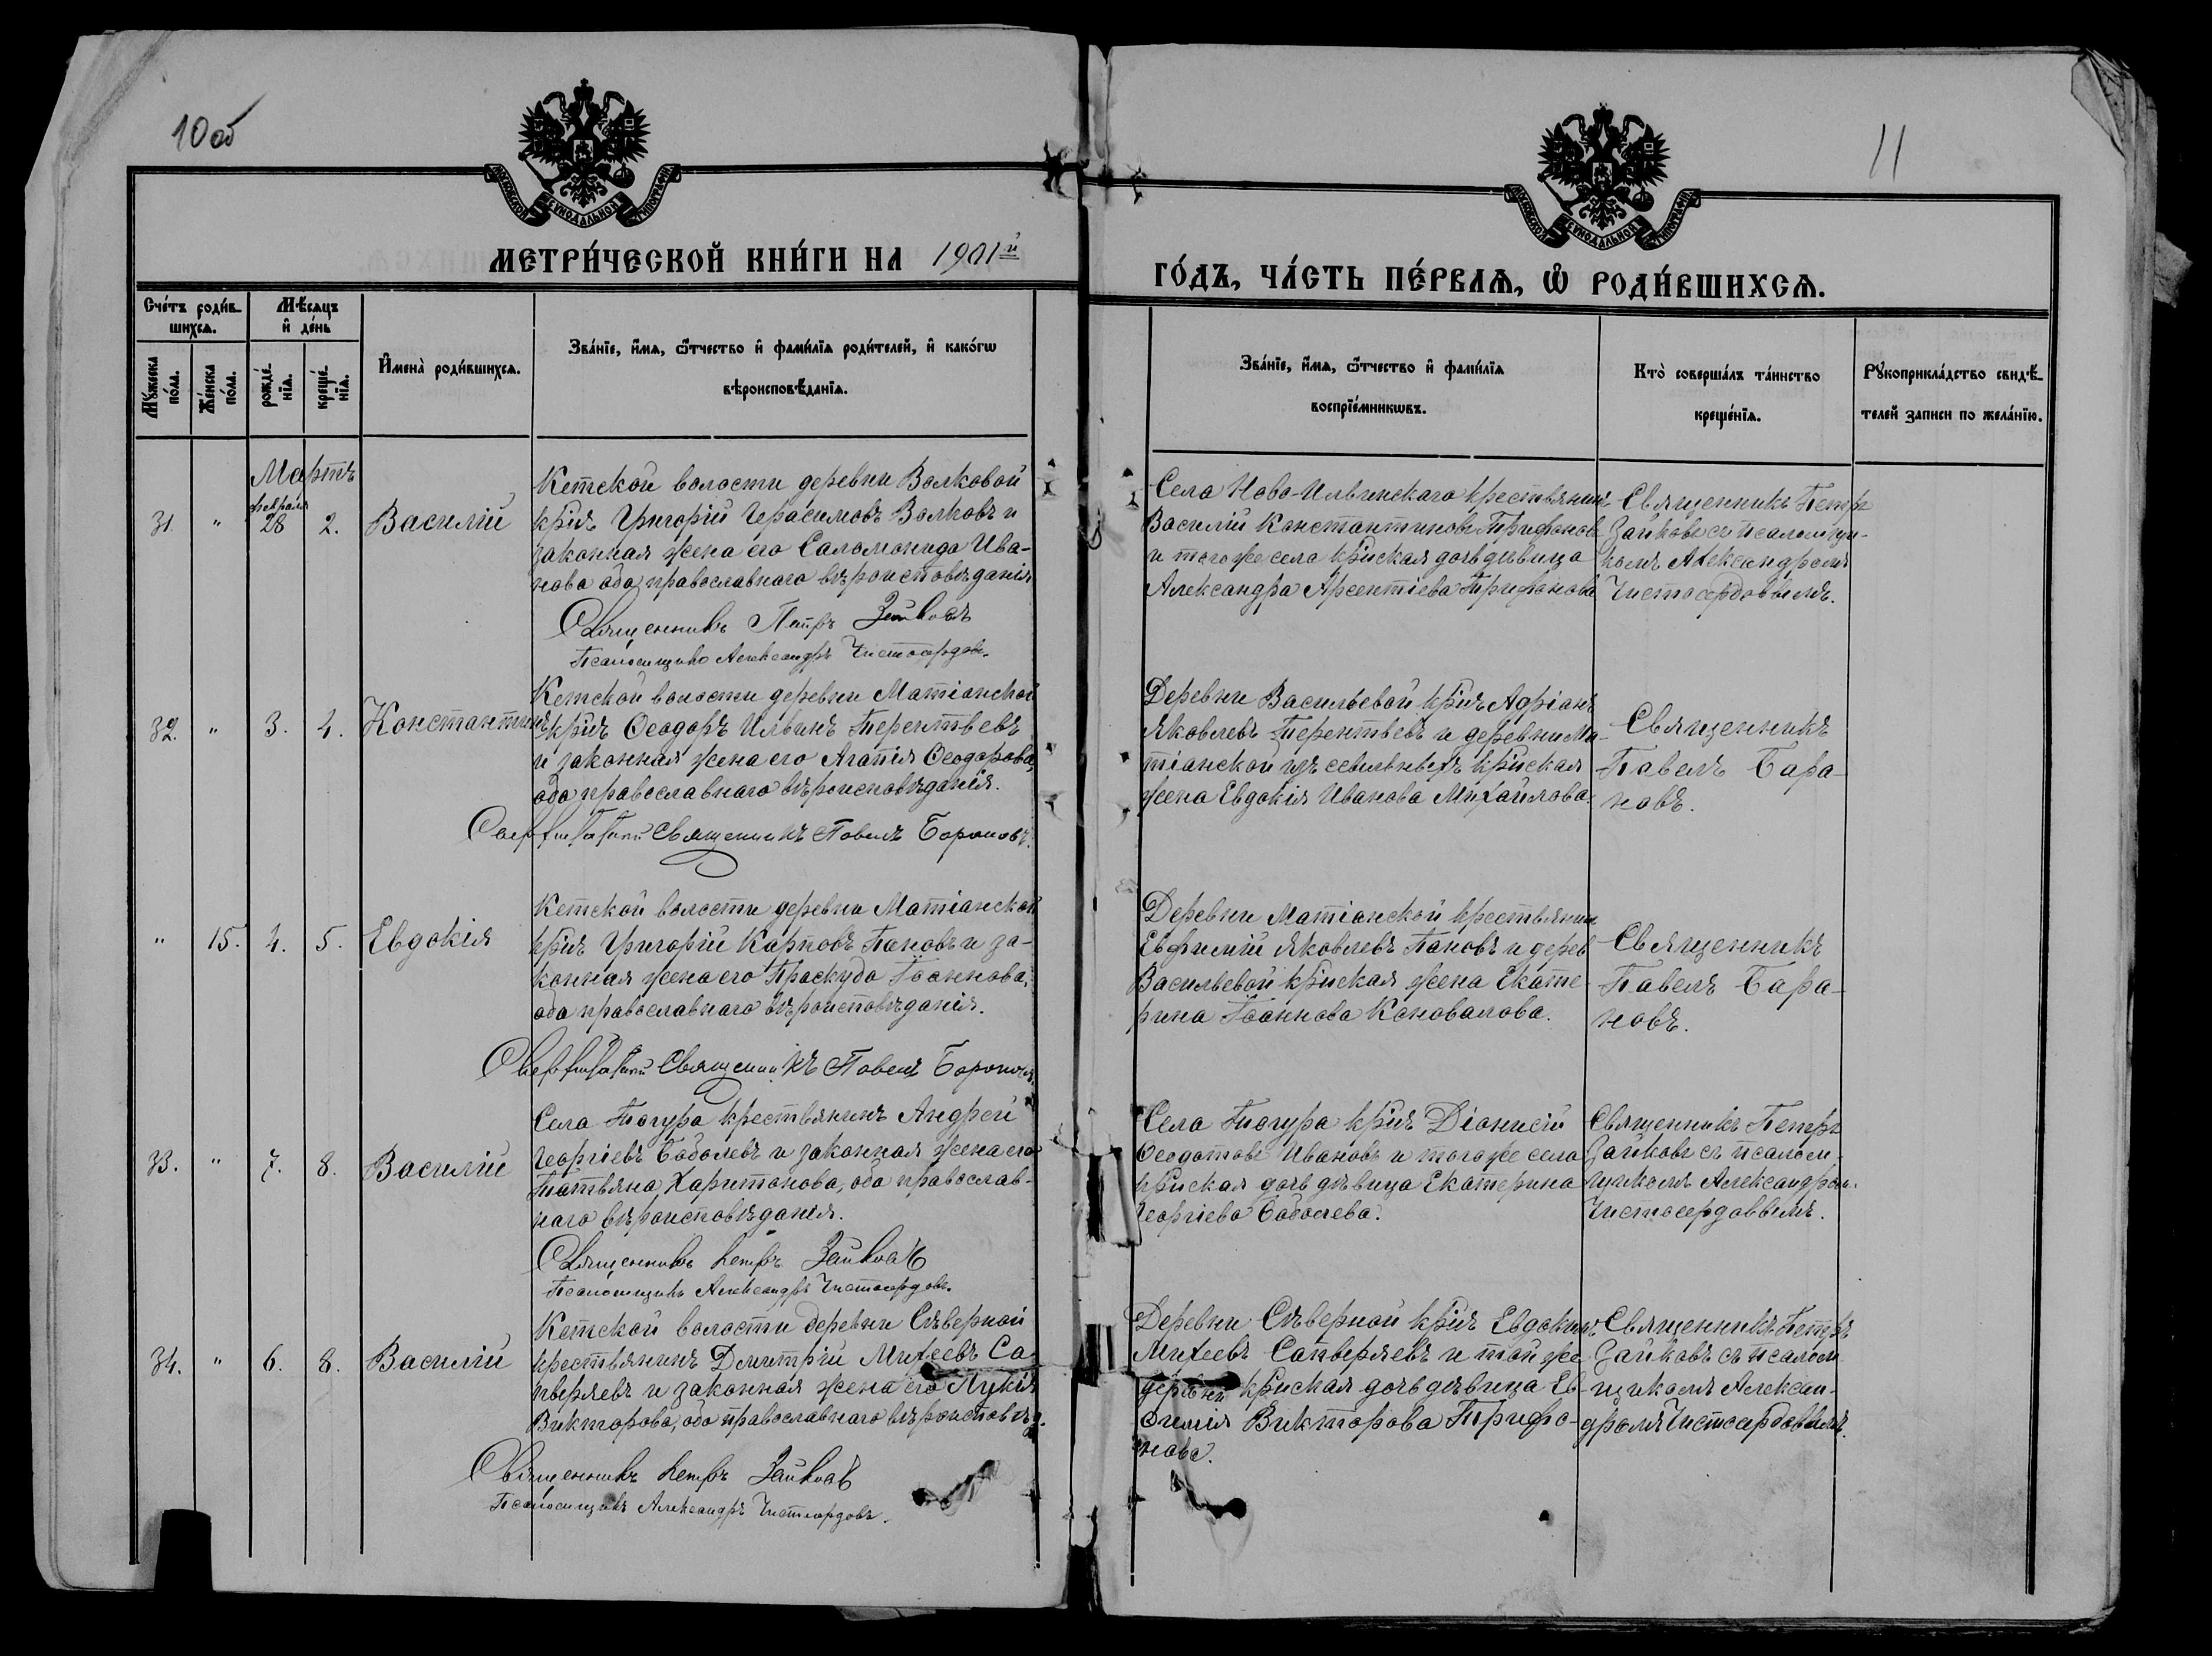 10 об
11
МОСКОВСКОЙ СУНОДАЛЬНОЙ ТИПОГРАФІИ
МОСКОВСКОЙ СУНОДАЛЬНОЙ ТИПОГРАФІИ
МЕТРИ́ЧЕСКОЙ КНИ́ГИ НА 1901й
ГО́ДЪ, ЧА́СТЬ ПЕ́РВАѦ, Ѡ҆ РОДИ́ВШИХСѦ.
Сче́тъ роди́в-
шихсѧ.
Мꙋ́жеска по́ла.
Же́нска по́ла.
Мѣ́сѧцъ
и҆ де́нь
рожде́-
нїѧ.
креще́-
нїѧ.
И҆мена̀ роди́вшихсѧ.
Зва́нїе, и҆́мѧ, ѻ҆́тчество и҆ фами́лїѧ роди́телей, и҆ како́гѡ
вѣроисповѣ́данїѧ.
Зва́нїе, и҆́мѧ, ѻ҆́тчество и҆ фами́лїѧ
воспрїе́мникѡвъ.
Кто̀ соверша́лъ та́инство
креще́нїѧ.
Рꙋкоприкла́дство свидѣ́-
телей записи по жела́нїю.
Мартъ
31. " февраля 28 2. Василій
Кетской волости деревни Волковой
кр̃нъ Григорій Герасимовъ Волковъ и
законная жена его Саломонида Ива-
нова оба православнаго вѣроисповѣданія
Священникъ Петръ Зайковъ
Псаломщикъ Александръ Чистосердовъ.
Села Ново-Ильинскаго крестьянинъ
Василій Константиновъ Трифоновъ
и того же села кр̃нская дочь дѣвица
Александра Арсентіева Трифонова
Священникъ Петръ
Зайковъ съ псаломщи-
комъ Александромъ
Чистосердовымъ.
32. " 3. 4. Константинъ
Кетской волости деревни Матіанской
кр̃нъ Ѳеодоръ Ильинъ Терентьевъ
и законная жена его Агапія Ѳеодорова,
оба православнаго вѣроисповѣданія.
Священникъ Павелъ Барановъ.
Деревни Васильевой кр̃нъ Адріанъ
Яковлевъ Терентьевъ и деревни Ма-
тіанской кр̃нская
жена Евдокія Иванова Михайлова.
Священникъ
Павелъ Бара-
новъ.
" 15. 4. 5. Евдокія
Кетской волости деревни Матіанской
кр̃нъ Григорій Карповъ Пановъ и за-
конная жена его Праскуда Іоаннова,
оба православнаго вѣроисповѣданія.
Священникъ Павелъ Барановъ.
Деревни Матіанской крестьянинъ
Евфимій Яковлевъ Пановъ и дерев
Васильевой кр̃нская жена Екате-
рина Іоаннова Коновалова.
Священникъ
Павелъ Бара-
новъ.
33. " 7. 8. Василій
Села Тогура крестьянинъ Андрей
Георгіевъ Соболевъ и законная жена его
Татьяна Харитонова, оба православ-
наго вѣроисповѣданія.
Священникъ Петръ Зайковъ
Псаломщикъ Александръ Чистосердовъ.
Села Тогура кр̃нъ Діонисій
Ѳеодотовъ Ивановъ и того же села
кр̃нская дочь дѣвица Екатерина
Георгіева Соболева.
Священникъ Петръ
Зайковъ съ псалом-
щикомъ Александром.
Чистосердовымъ.
34. " 6. 8. Василій
Кетской волости деревни Сѣверной
крестьянинъ Дмитрій Михеевъ Са-
пьеряевъ и законная жена его Лукія
Викторова, оба православнаго вѣроисповѣд.
Священникъ Петръ Зайковъ
Псаломщикъ Александръ Чистосердовъ.
Деревни Сѣверной кр̃нъ Евдокимъ
Михеевъ Сапьеряевъ и той же
деревни кр̃нская дочь дѣвица Ев-
фимія Викторова Трифо-
нова.
Священникъ Петръ
Зайковъ съ псалом
щикомъ Алексан-
дромъ Чистосердовымъ.